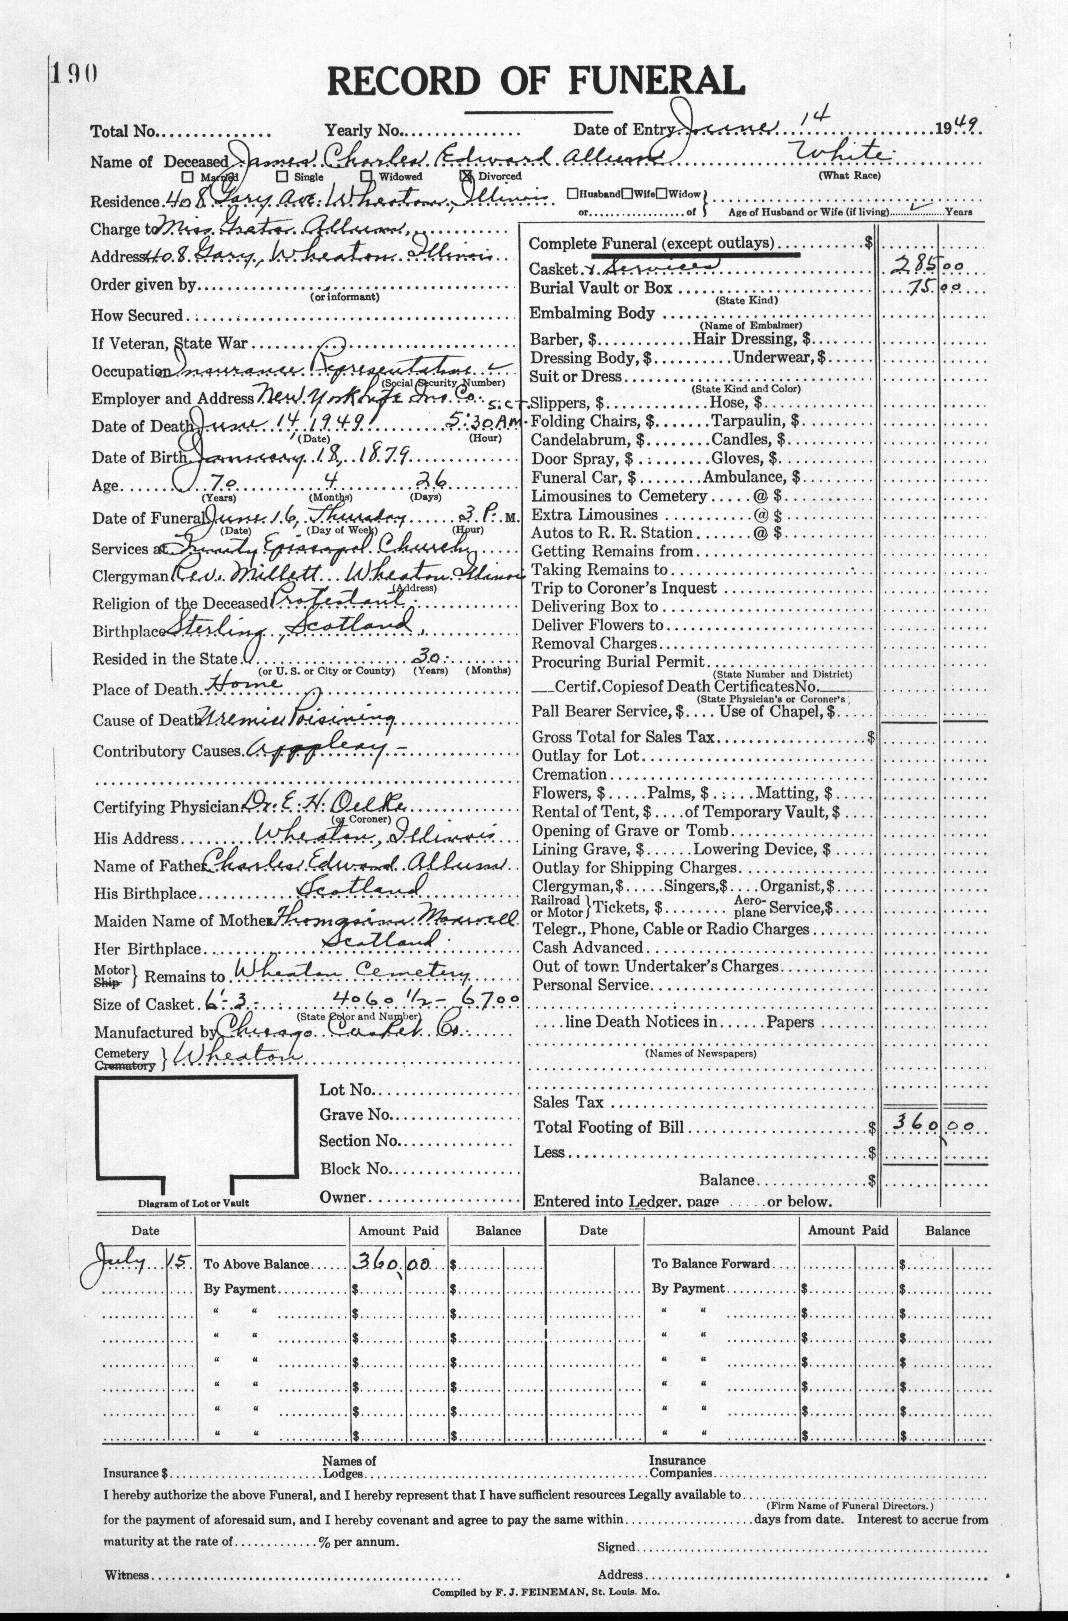 190
RECORD OF FUNERAL
Total No. Yearly No. Date of Entry June 14 1949
Name of Deceased James Charles Edward Allum White
Married Single Widowed Divorced (What Race)
Residence 408 Gary Ave. Wheaton, Illinois Husband Wife Widow
or of Age of Husband or Wife (if living) Years
Charge to Miss Allum,
Address 408 Gary, Wheaton Illinois
Order given by
(or informant)
How Secured
If Veteran, State War
Occupation Insurance Representative
(Social Security Number)
Employer and Address New York Life Ins Co. S.C.T.
Date of Death June 14 1949 5:30 AM
(Date) (Hour)
Date of Birth January 18, 1879
Age 70 4 26
(Years) (Months) (Days)
Date of Funeral June 16, Thursday 3 P. M.
(Date) (Day of Week) (Hour)
Services at Trinity Episcopal Church
Clergyman Rev. Millett Wheaton Illinois
(Address)
Religion of the Deceased Protestant
Birthplace Sterling, Scotland,
Resided in the State 30
(or U. S. or City or County) (Years) (Months)
Place of Death Home
Cause of Death Uremic Poisining
Contributory Causes
Certifying Physician Dr. E. H. Oelke
(or Coroner)
His Address Wheaton, Illinois
Name of Father Charles Edward Allum
His Birthplace Scotland
Maiden Name of Mother Thomasina Maxwell
Her Birthplace Scotland
Motor Ship } Remains to Wheaton Cemetery
Size of Casket 6'-3- 4060 1/2 - 6700
(State Color and Number)
Manufactured by Chicago Casket Co.
Cemetery Crematory } Wheaton
Lot No.
Grave No.
Section No.
Block No.
Owner
Diagram of Lot or Vault
Complete Funeral (except outlays) $
Casket & Services 285 00
Burial Vault or Box 75 00
(State Kind)
Embalming Body
(Name of Embalmer)
Barber, $ Hair Dressing, $
Dressing Body, $ Underwear, $
Suit or Dress
(State Kind and Color)
Slippers, $ Hose, $
Folding Chairs, $ Tarpaulin, $
Candelabrum, $ Candles, $
Door Spray, $ Gloves, $
Funeral Car, $ Ambulance, $
Limousines to Cemetery @ $
Extra Limousines @ $
Autos to R. R. Station @ $
Getting Remains from
Taking Remains to
Trip to Coroner's Inquest
Delivering Box to
Deliver Flowers to
Removal Charges
Procuring Burial Permit
(State Number and District)
Certif. Copies of Death Certificates No.
(State Physician's or Coroner's)
Pall Bearer Service, $ Use of Chapel, $
Gross Total for Sales Tax $
Outlay for Lot
Cremation
Flowers, $ Palms, $ Matting, $
Rental of Tent, $ of Temporary Vault, $
Opening of Grave or Tomb
Lining Grave, $ Lowering Device, $
Outlay for Shipping Charges
Clergyman, $ Singers, $ Organist, $
Railroad or Motor } Tickets, $ Aeroplane Service, $
Telegr., Phone, Cable or Radio Charges
Cash Advanced
Out of town Undertaker's Charges
Personal Service
line Death Notices in Papers
(Names of Newspapers)
Sales Tax
Total Footing of Bill $ 360 00
Less $
Balance $
Entered into Ledger, page or below.
Date Amount Paid Balance Date Amount Paid Balance
July 15 To Above Balance 360 00 $ To Balance Forward $
By Payment $ $ By Payment $ $
" " $ $ " " $ $
" " $ $ " " $ $
" " $ $ " " $ $
" " $ $ " " $ $
" " $ $ " " $ $
" " $ $ " " $ $
Insurance $ Names of Lodges Insurance Companies
I hereby authorize the above Funeral, and I hereby represent that I have sufficient resources Legally available to
(Firm Name of Funeral Directors.)
for the payment of aforesaid sum, and I hereby covenant and agree to pay the same within days from date. Interest to accrue from
maturity at the rate of % per annum.
Signed
Witness Address
Compiled by F. J. FEINEMAN, St. Louis. Mo.